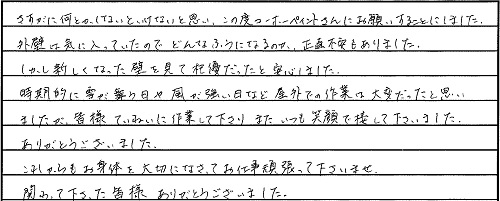 さすがに何とかしないといけないと思い、この度コーホーペイントさんにお願いすることにしました。
外壁は気に入っていたので どんなふうになるのか、正直不安もありました。
しかし新しくなった壁を見て杞憂だったと安心しました。
時期的に雪が舞う日や風が強い日など屋外での作業は大変だったと思い
ましたが、皆様 ていねいに作業して下さり また いつも笑顔で接して下さいました。
ありがとうございました。
これからもお身体を大切になさってお仕事頑張って下さいませ。
関わって下さった皆様 ありがとうございました。